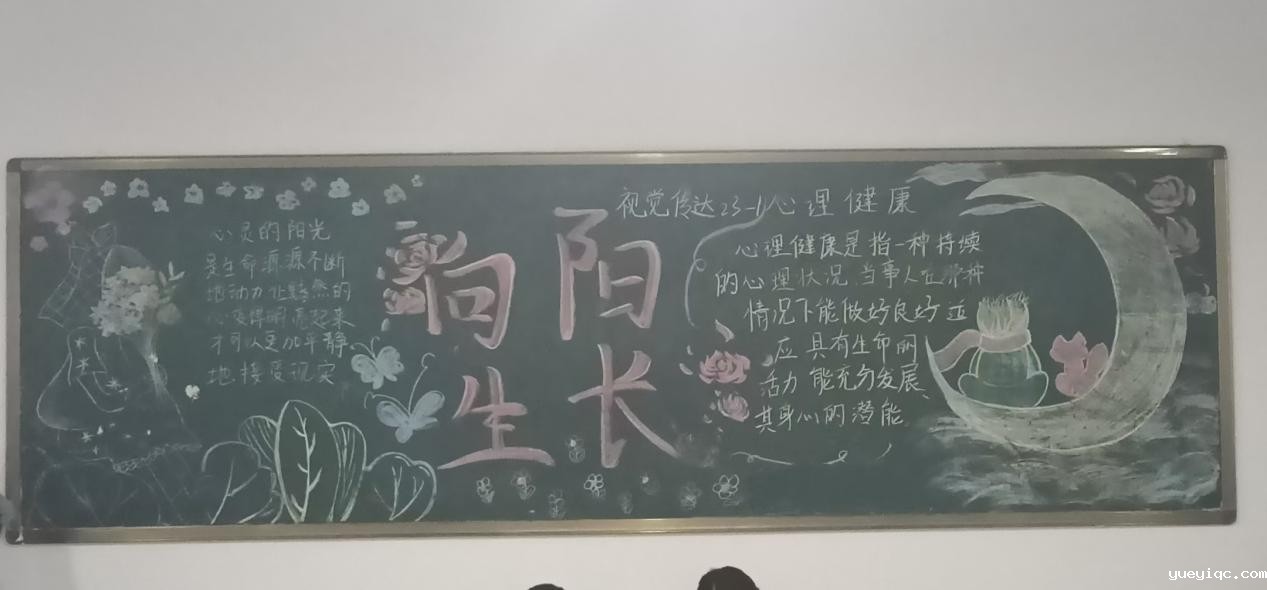 心灵的阳光
是生命源源不断
地动力 让黯然的
心变得明亮起来
才可以更加平静
地接受现实
向阳
生长
视觉传达23-1心理健康
心理健康是指一种持续
的心理状况,当事人在那种
情况下能做好良好並
应 具有生命的
活力 能充分发展
其身心的潜能
yueyiqc.com